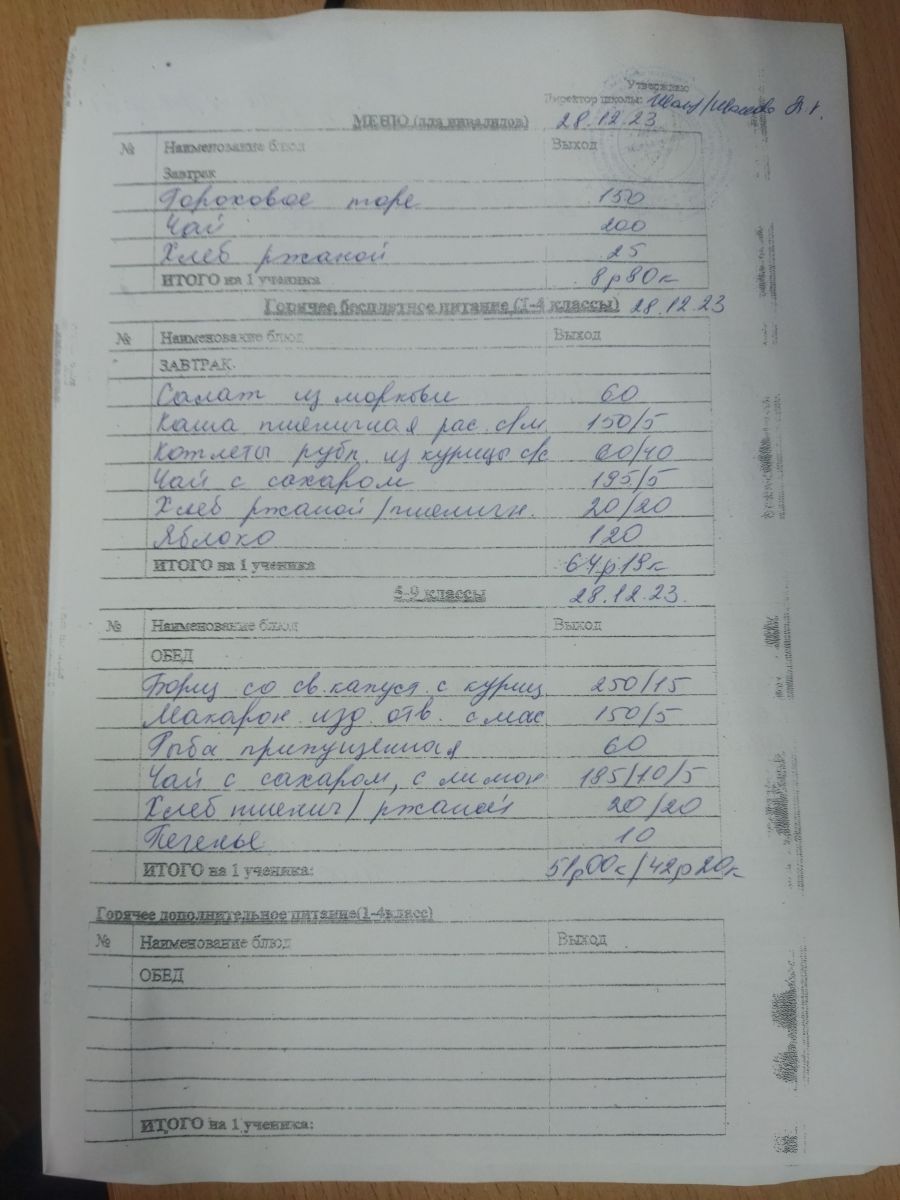 Утверждаю
Директор школы:
МЕНЮ (для инвалидов) 28.12.23
№ Наименование блюд Выход
Завтрак
Гороховое пюре 150
Чай 200
Хлеб ржаной 25
ИТОГО на 1 ученика 8р80к
Горячее бесплатное питание (1-4 классы) 28.12.23
№ Наименование блюд Выход
ЗАВТРАК
Салат из моркови 60
Каша пшеничная рас. с/м 150/5
Котлеты рубл. из курицы с/с 60/40
Чай с сахаром 195/5
Хлеб ржаной/пшеничн. 20/20
Яблоко 120
ИТОГО на 1 ученика 64р19к
5-9 классы 28.12.23.
№ Наименование блюд Выход
ОБЕД
Борщ со св.капуст с куриц 250/15
Макарон. изд. отв. с мас 150/5
Рыба припущенная 60
Чай с сахаром, с лимон 185/10/5
Хлеб пшенич/ ржаной 20/20
Печенье 10
ИТОГО на 1 ученика: 51р00к/42р20к
Горячее дополнительное питание(1-4класс)
№ Наименование блюд Выход
ОБЕД
ИТОГО на 1 ученика: